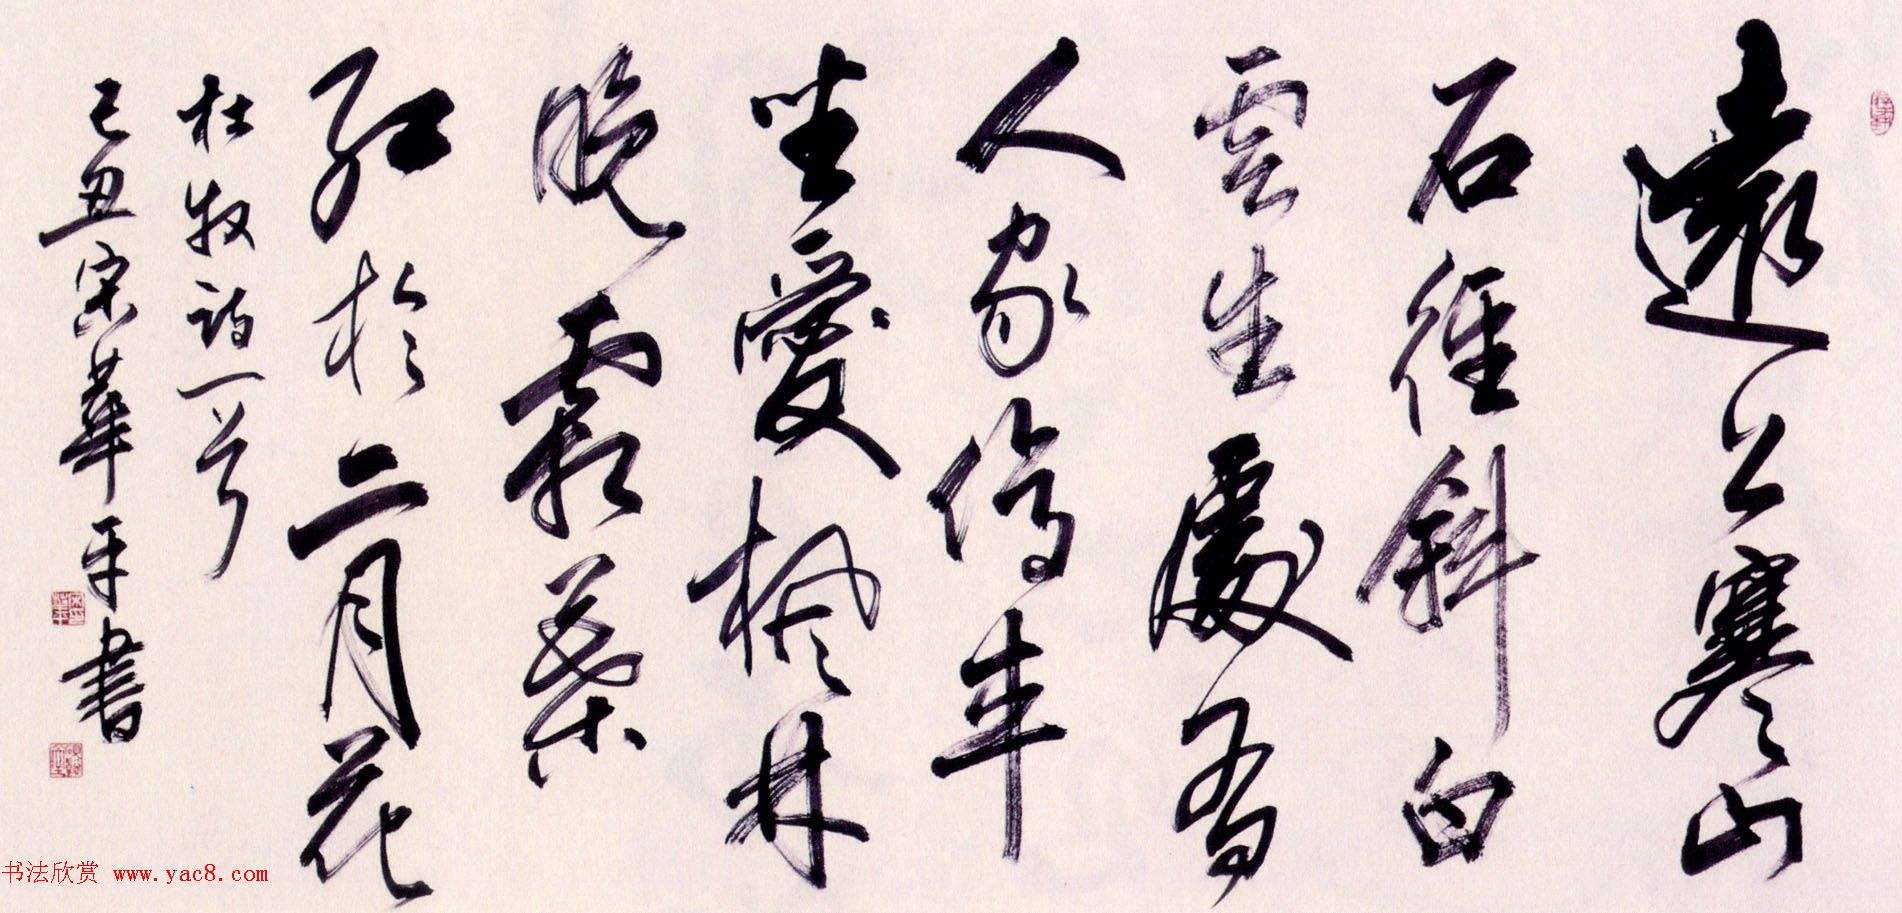 遠上寒山
石徑斜白
雲生處有
人家停車
坐愛楓林
晚霜葉
紅於二月花
杜牧詩一首
己丑宋華平書
书法欣赏 www.yac8.com